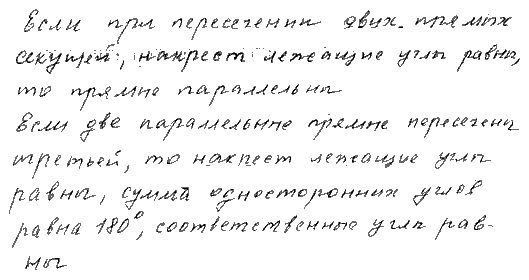 Если при пересечении двух прямых
секущей, накрест лежащие углы равны,
то прямые параллельны
Если две параллельные прямые пересечены
третьей, то накрест лежащие углы
равны, сумма односторонних углов
равна 180°, соответственные углы рав-
ны